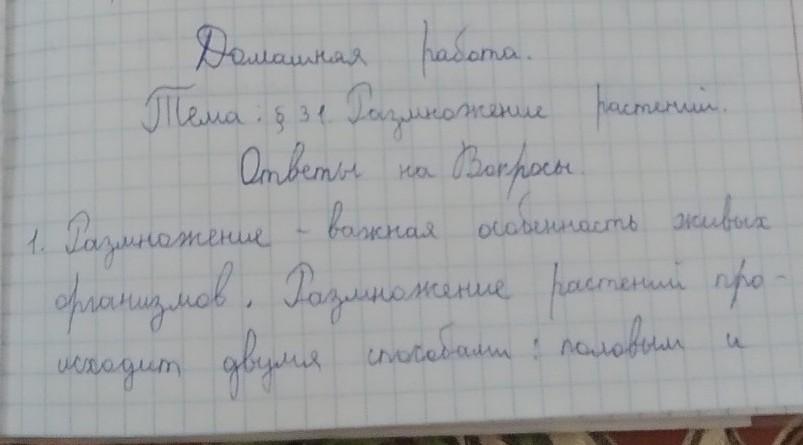 Домашная работа.
Тема: § 31 Размножение растений.
Ответы на Вопросы.
1. Размножение - важная особенность живых
организмов. Размножение растений про-
исходит двумя способами: половым и